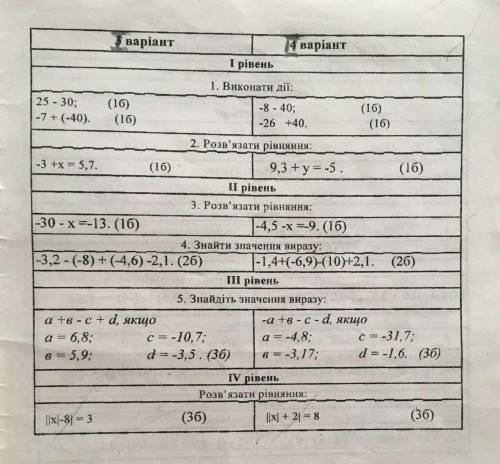 3 варіант 4 варіант
І рівень
1. Виконати дії:
25 - 30; (1б) -8 - 40; (1б)
-7 + (-40). (1б) -26 +40. (1б)
2. Розв'язати рівняння:
-3 +х = 5,7. (1б) 9,3 + у = -5 . (1б)
ІІ рівень
3. Розв'язати рівняння:
-30 - х =-13. (1б) -4,5 -х =-9. (1б)
4. Знайти значення виразу:
-3,2 - (-8) + (-4,6) -2,1. (2б) -1,4+(-6,9)-(10)+2,1. (2б)
ІІІ рівень
5. Знайдіть значення виразу:
а +в - с + d, якщо -а +в - с - d, якщо
а = 6,8; с = -10,7; а = -4,8; с = -31,7;
в = 5,9; d = -3,5 . (3б) в = -3,17; d = -1,6. (3б)
IV рівень
Розв'язати рівняння:
||х|-8| = 3 (3б) ||х| + 2| = 8 (3б)